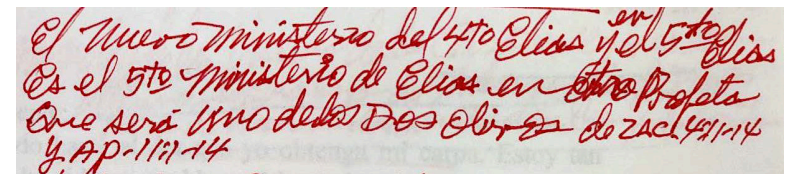 El Nuevo Ministerio del 4to Elias y en el 5to Elias
Es el 5to Ministerio de Elias en otro Profeta
Que será Uno de los Dos Olivos de Zac. 4:1-14
y AP-11:1-14